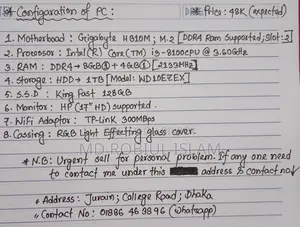 * Configaration of PC:
DE Prices: 48K (expected)
1. Motherboad: Gigabyte H810M; M.2 [DDR4 Ram Supported; Slot: 2]
2. Processor: Intel(R) Core(TM) i3-8100CPU @ 3.60GHz
3. RAM: DDR4 → 8GB① + 4GB① [2133MHz]
4. Storage: HDD → 1TB [Model: WD10EZEX]
5. S.S.D: King Fast 128GB
6. Monitor: HP (17" HD) supported.
7. Wifi Adaptor: TP-Link 300MBps
8. Cassing: RGB Light Effecting glass cover.
MD ROBIUL ISLAM
* N.B: Urgent sell for personal problem. If any one need
to contact me under this address & contact no↓
* Address: Jurain; College Road; Dhaka
* Contact No: 01886 463896 (Whatsapp)